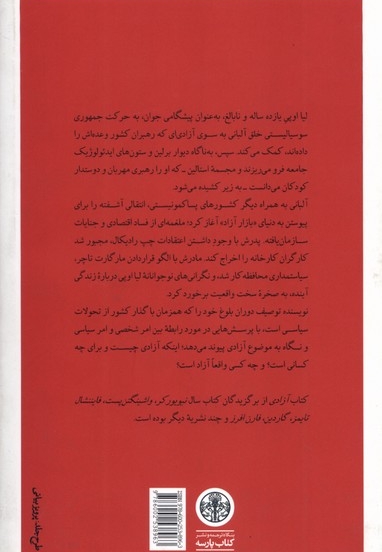 لیا اوپی یازده ساله و نابالغ، به‌عنوان پیشگامی جوان، به حرکت جمهوری
سوسیالیستی خلق آلبانی به سوی آزادی‌ای که رهبران کشور وعده‌اش را
داده‌اند، کمک می‌کند. سپس، به‌ناگاه دیوار برلین و ستون‌های ایدئولوژیک
جامعه فرو می‌ریزند و مجسمهٔ استالین ـ که او را رهبری مهربان و دوستدار
کودکان می‌دانست ـ به زیر کشیده می‌شود.
آلبانی به همراه دیگر کشورهای پساکمونیستی، انتقالی آشفته را برای
پیوستن به دنیای «بازار آزاد» آغاز کرد؛ ملغمه‌ای از فساد اقتصادی و جنایات
سازمان‌یافته. پدرش با وجود داشتن اعتقادات چپ رادیکال، مجبور شد
کارگران کارخانه را اخراج کند. مادرش با الگو قراردادن مارگارت تاچر،
سیاستمداری محافظه‌کار شد، و نگرانی‌های نوجوانانهٔ لیا اوپی دربارهٔ زندگی
آینده، به صخرهٔ سخت واقعیت برخورد کرد.
نویسنده توصیف دوران بلوغ خود را که همزمان با گذار کشور از تحولات
سیاسی است، با پرسش‌هایی در مورد رابطهٔ بین امر شخصی و امر سیاسی
و نگاه به موضوع آزادی پیوند می‌دهد؛ اینکه آزادی چیست و برای چه
کسانی است؟ و چه کسی واقعاً آزاد است؟
کتاب آزادی از برگزیدگان کتاب سال نیویورکر، واشینگتن‌پست، فایننشال
تایمز، گاردین، فارن افرز و چند نشریهٔ دیگر بوده است.
طرح جلد: پرویز بیانی
بنگاه ترجمه و نشر
کتاب پارسه